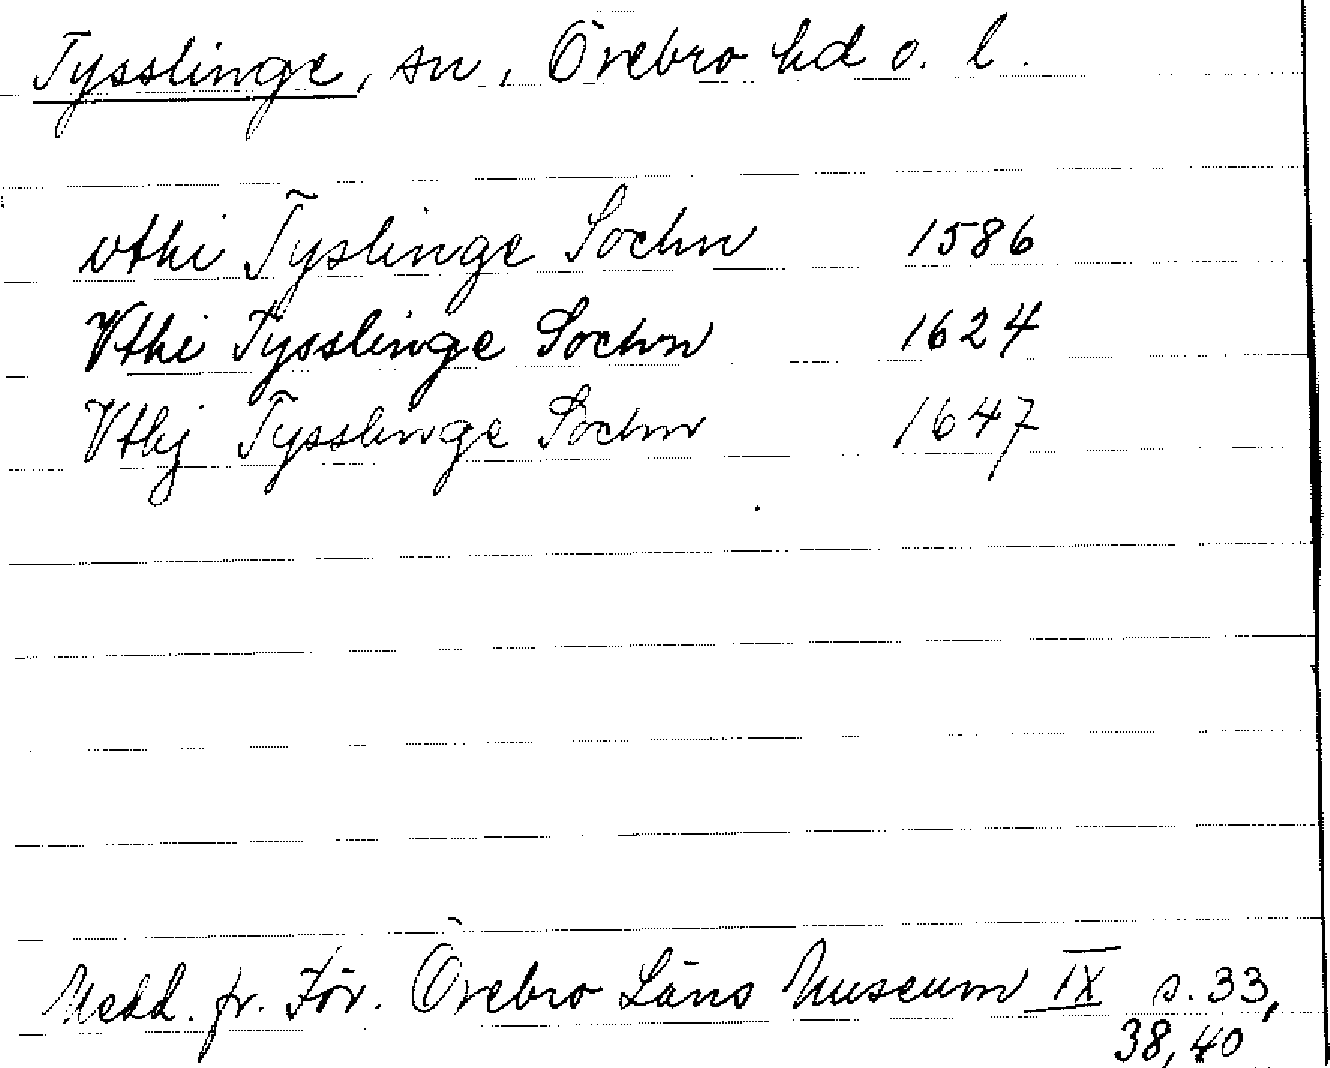 Tysslinge, sn, Örebro hd o. l.
vthi Tyslinge Sochn 1586
Vthi Tysslinge Sochn 1624
Vthj Tysslinge Sochn 1647
Medd. fr. För. Örebro Läns Museum IX s. 33,
38, 40